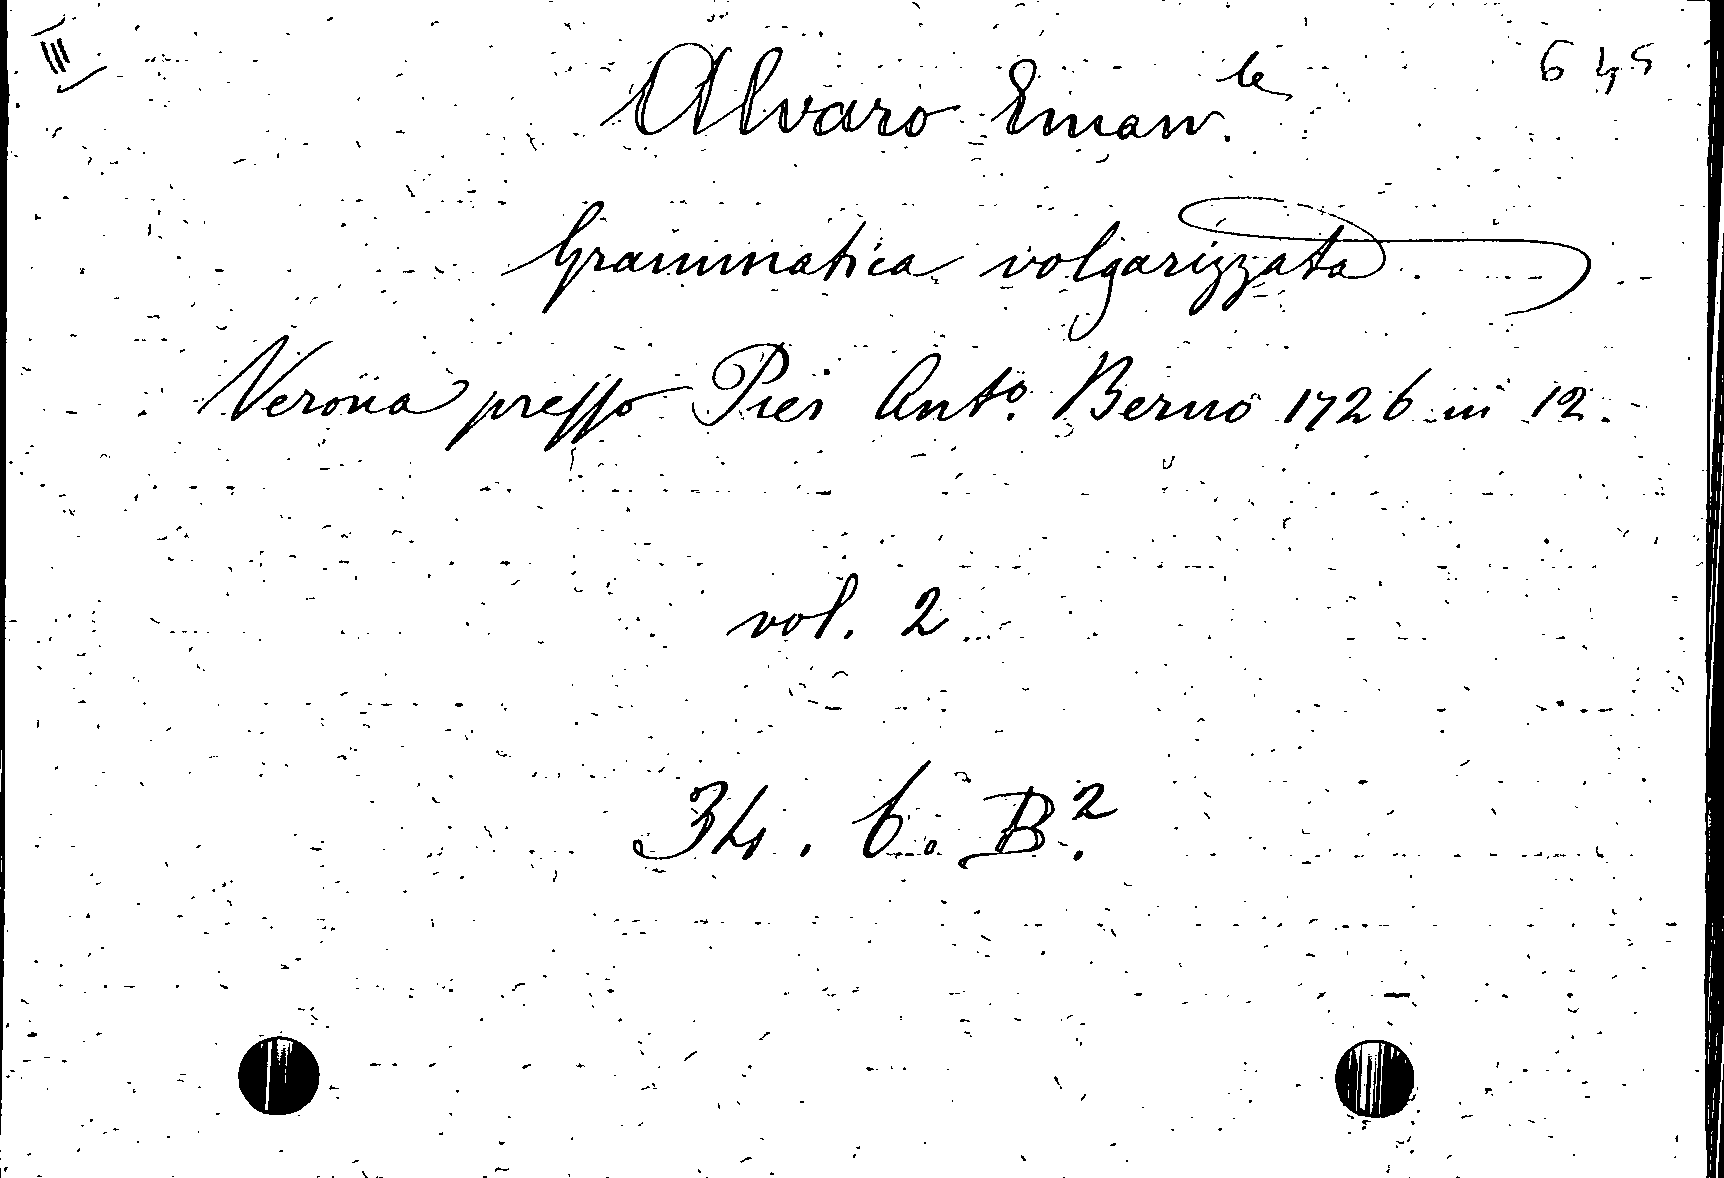 III 645
Alvaro Eman.le
Grammatica volgarizzata
Verona presso Pier Ant.o Berno 1726 in 12.
vol. 2
34. 6. B.2